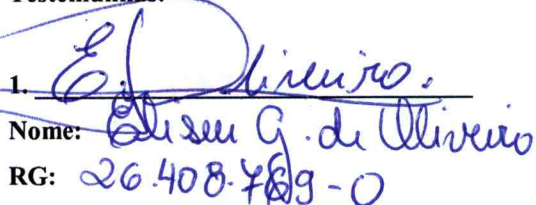 Testemunhas:
1. E. Oliveira.
Nome: Eliseu G. de Oliveira
RG: 26.408.769-0